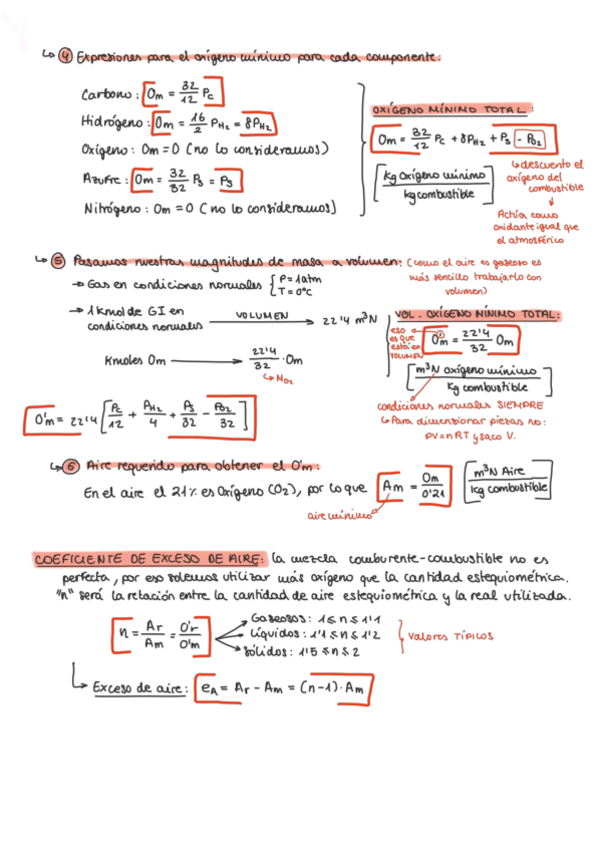 ↳ ④ Expresiones para el oxígeno mínimo para cada componente:
Carbono: Om = 32/12 Pc
Hidrógeno: Om = 16/2 PH2 = 8PH2
Oxígeno: Om = 0 (no lo consideramos)
Azufre: Om = 32/32 Ps = Ps
Nitrógeno: Om = 0 (no lo consideramos)
OXÍGENO MÍNIMO TOTAL:
Om = 32/12 Pc + 8PH2 + Ps - PO2
[kg Oxígeno mínimo / kg combustible]
↳ descuento el
oxígeno del
combustible
↓
Actúa como
oxidante igual que
el atmosférico
↳ ⑤ Pasamos nuestras magnitudes de masa a volumen: (como el aire es gaseoso es
más sencillo trabajarlo con
volumen)
→ Gas en condiciones normales { P = 1atm
T = 0ºC
→ 1 kmol de GI en
condiciones normales
VOLUMEN → 22'4 m³N
Kmoles Om → 22'4/32 · Om
↳ MO2
VOL. OXÍGENO MÍNIMO TOTAL:
eso
es que
está en
VOLUMEN
O'm = 22'4/32 Om
[m³N oxígeno mínimo / kg combustible]
condiciones normales SIEMPRE
↳ Para dimensionar piezas no:
PV = nRT y saco V.
O'm = 22'4 [Pc/12 + PH2/4 + Ps/32 - PO2/32]
↳ ⑥ Aire requerido para obtener el O'm:
En el aire el 21% es Oxígeno (O2), por lo que Am = Om/0'21 [m³N Aire / kg combustible]
aire mínimo
COEFICIENTE DE EXCESO DE AIRE: la mezcla comburente-combustible no es
perfecta, por eso solemos utilizar más oxígeno que la cantidad estequiométrica.
"n" será la relación entre la cantidad de aire estequiométrica y la real utilizada.
n = Ar/Am = O'r/O'm
Gaseosos: 1 ≤ n ≤ 1'1
Líquidos: 1'1 ≤ n ≤ 1'2
Sólidos: 1'5 ≤ n ≤ 2
Valores TÍPICOS
↳ Exceso de aire: eA = Ar - Am = (n-1)·Am